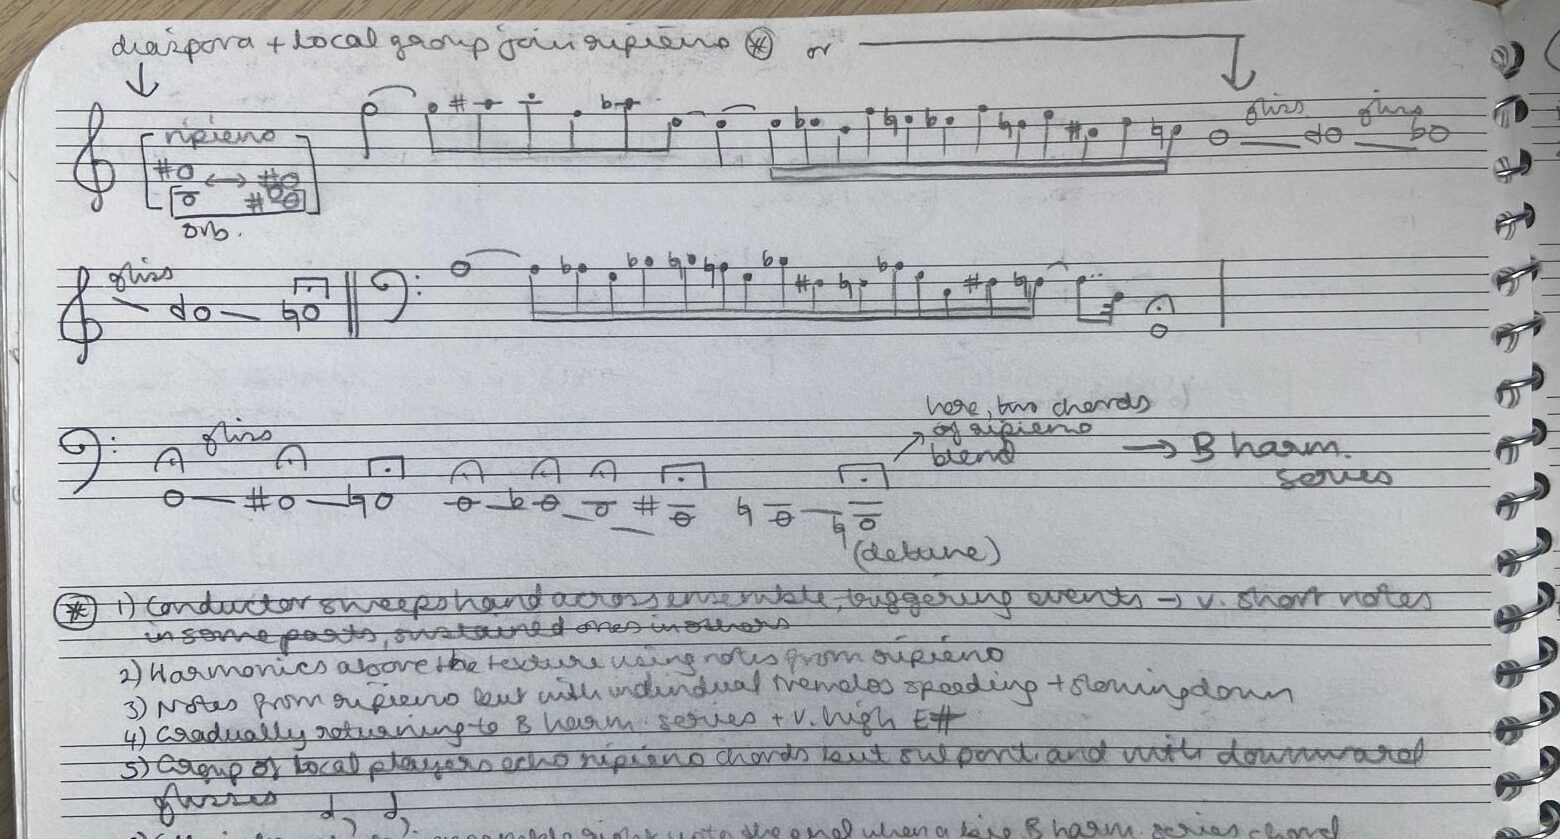 diaspora + local group join ripieno * or
ripieno
orb.
gliss gliss
gliss
gliss
here, two chords
of ripieno
blend → B harm.
series
(detune)
* 1) Conductor sweeps hand across ensemble, triggering events → v. short notes
in some parts, sustained ones in others
2) Harmonics above the texture using notes from ripieno
3) Notes from ripieno but with individual tremolos speeding + slowing down
4) Gradually returning to B harm. series + v. high E#
5) Group of local players echo ripieno chords but sul pont. and with downward
glisses
right up to the end when a big B harm. series chord